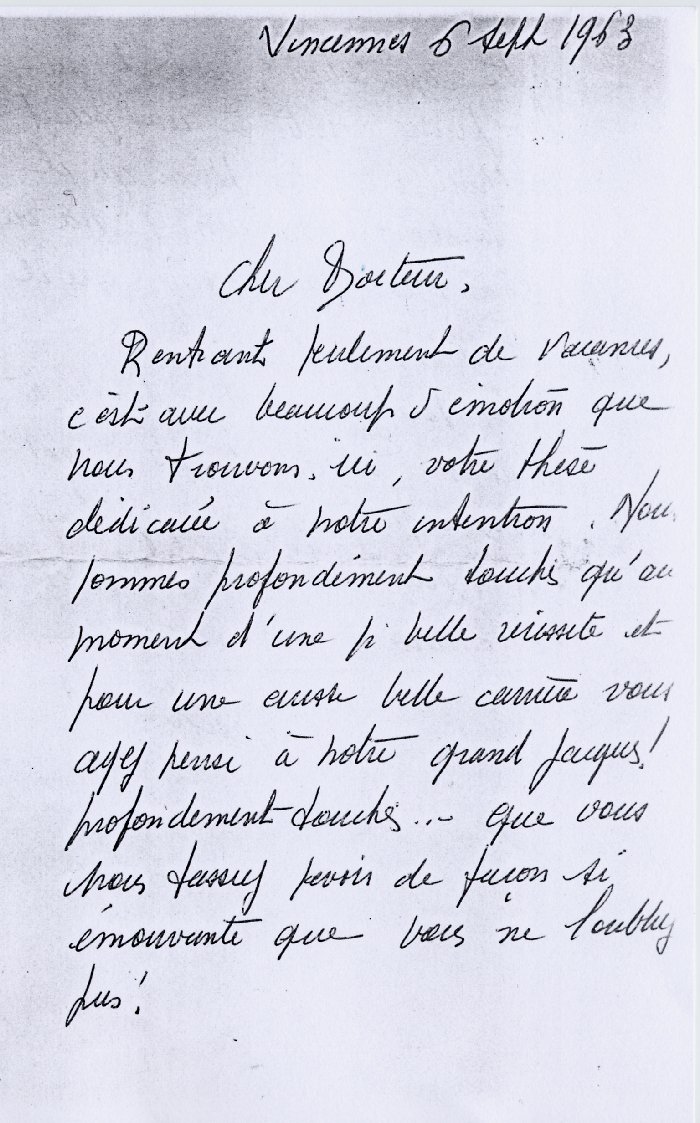 Vincennes 6 Sept 1963
Cher Docteur,
Rentrant seulement de vacances,
c'est avec beaucoup d'émotion que
nous trouvons, ici, votre thèse
dédicacée à notre intention. Nous
sommes profondément touchés qu'au
moment d'une si belle réussite et
pour une aussi belle carrière vous
ayez pensé à notre grand Jacques!
profondément touchés... que vous
nous fassiez savoir de façon si
émouvante que vous ne l'oubliez
pas!